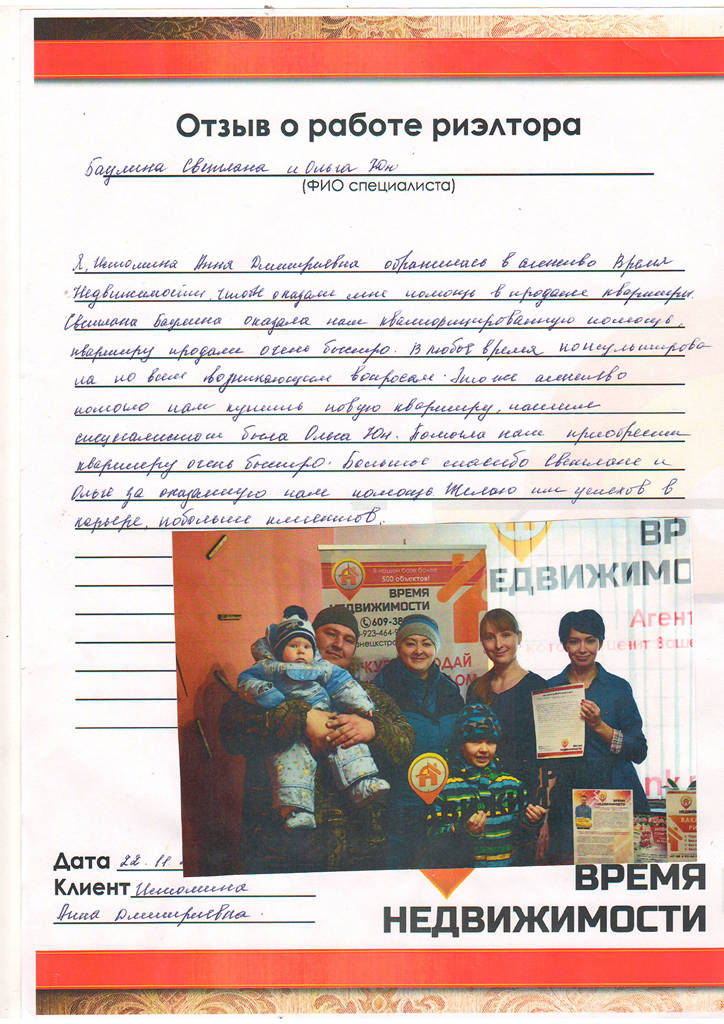 Отзыв о работе риэлтора
Баулина Светлана и Ольга Юн
(ФИО специалиста)
Я, Истомина Анна Дмитриевна обратилась в агенство Время
Недвижимости, чтобы оказали мне помощь в продаже квартиры.
Светлана Баулина оказала нам квалифицированную помощь,
квартиру продали очень быстро. В любое время консультирова
ла по всем возникающим вопросам. Это же агенство
помогло нам купить новую квартиру, нашим
специалистом была Ольга Юн. Помогла нам приобрести
квартиру очень быстро. Большое спасибо Светлане и
Ольге за оказанную нам помощь. Желаю им успехов в
карьере, побольше клиентов.
В нашей базе более
500 объектов!
ВРЕМЯ
НЕДВИЖИМОСТИ
609-38
-923-464-9
КУ
ОДАЙ
ОМ
ВР
ЕДВИЖИМО
Агент
ценит Ваше
ВРЕМЯ
Дата 22.11.
Клиент Истомина
Анна Дмитриевна.
ВРЕМЯ
НЕДВИЖИМОСТИ